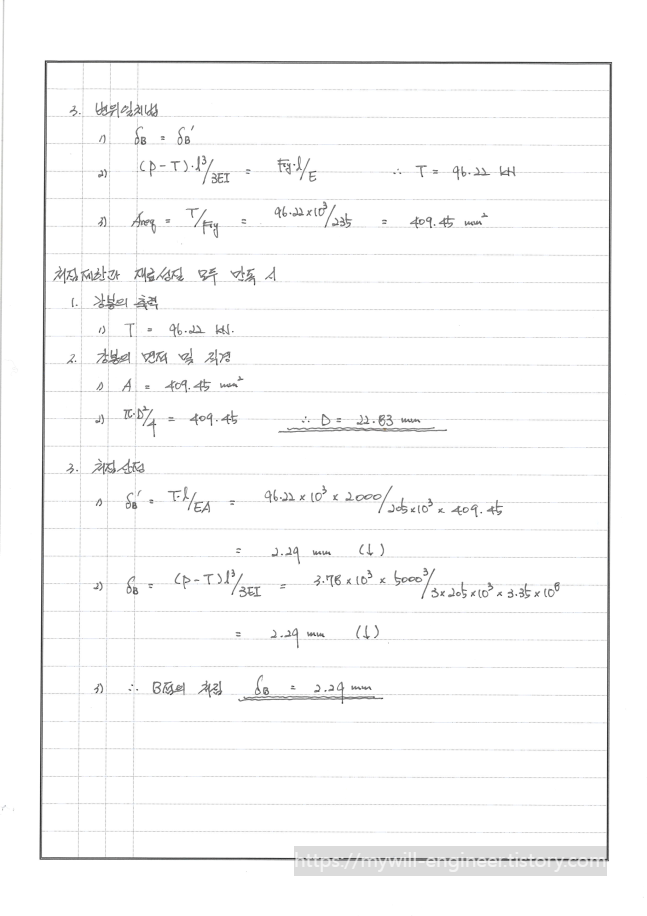 3. 변위일치법
1) δB = δB'
2) (P-T)·l³/3EI = Fy·l/E ∴ T = 96.22 kN
3) Areq = T/Fy = 96.22×10³/235 = 409.45 mm²
처짐제한과 재료성질 모두 만족 시
1. 강봉의 축력
1) T = 96.22 kN.
2. 강봉의 면적 및 직경
1) A = 409.45 mm²
2) π·D²/4 = 409.45 ∴ D = 22.83 mm
3. 처짐산정
1) δB' = T·l/EA = 96.22 × 10³ × 2000/205×10³ × 409.45
= 2.29 mm (↓)
2) δB = (P-T)l³/3EI = 3.78 × 10³ × 5000³/3×205×10³ × 3.35×10⁸
= 2.29 mm (↓)
3) ∴ B점의 처짐 δB = 2.29 mm
https://mywill-engineer.tistory.com